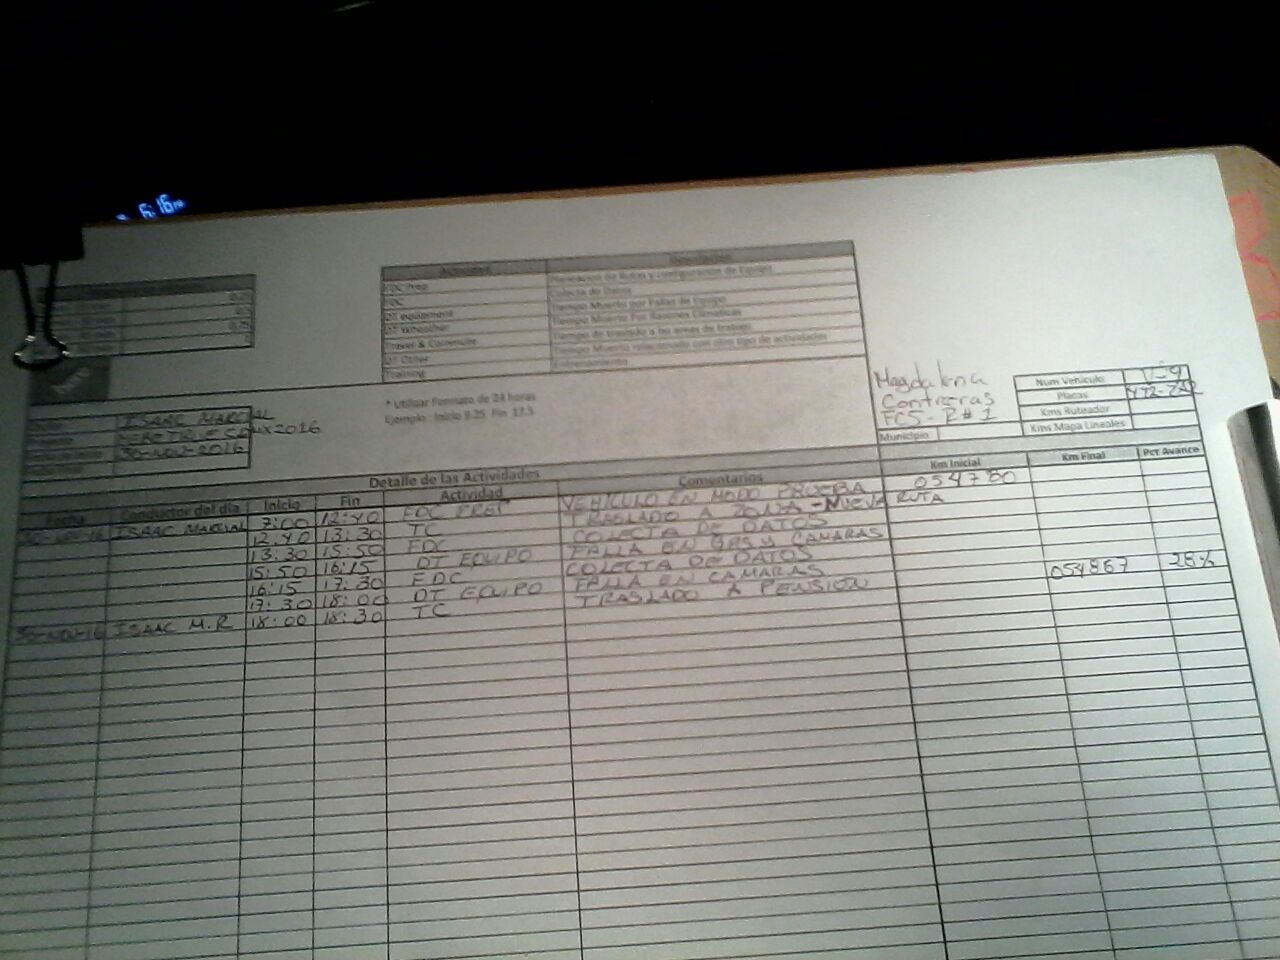 6:16 PM
Actividad Descripcion
FDC Prep Planeacion de Rutas y configuracion de Equipo
FDC Colecta de Datos
DT equipment Tiempo Muerto por Fallas de Equipo
DT Weather Tiempo Muerto Por Razones Climaticas
Travel & Commute Tiempo de traslado a las areas de trabajo
DT Other Tiempo Muerto relacionado con otro tipo de actividades
Training Entrenamiento
0.25
0.5
0.75
1
* Utilizar Formato de 24 horas
Ejemplo : Inicio 8.25 Fin 17.5
Magdalena
Contreras
FCS - R#1
Municipio
Num Vehiculo
Placas
Kms Ruteador
Kms Mapa Lineales
ISAAC MARCIAL
CDMX2016
30-NOV-2016
Detalle de las Actividades
Fecha Conductor del día Inicio Fin Actividad Comentarios Km Inicial Km Final Pct Avance
30-NOV-16 ISAAC MARCIAL 7:00 12:40 FDC PREP VEHÍCULO EN MODO PRUEBA 054780
12:40 13:30 TC TRASLADO A ZONA - NUEVA RUTA
13:30 15:50 FDC COLECTA DE DATOS
15:50 16:15 DT EQUIPO FALLA EN GPS Y CAMARAS
16:15 17:30 FDC COLECTA DE DATOS
17:30 18:00 DT EQUIPO FALLA EN CAMARAS
30-NOV-16 ISAAC M.R 18:00 18:30 TC TRASLADO A PENSION 054867 28%